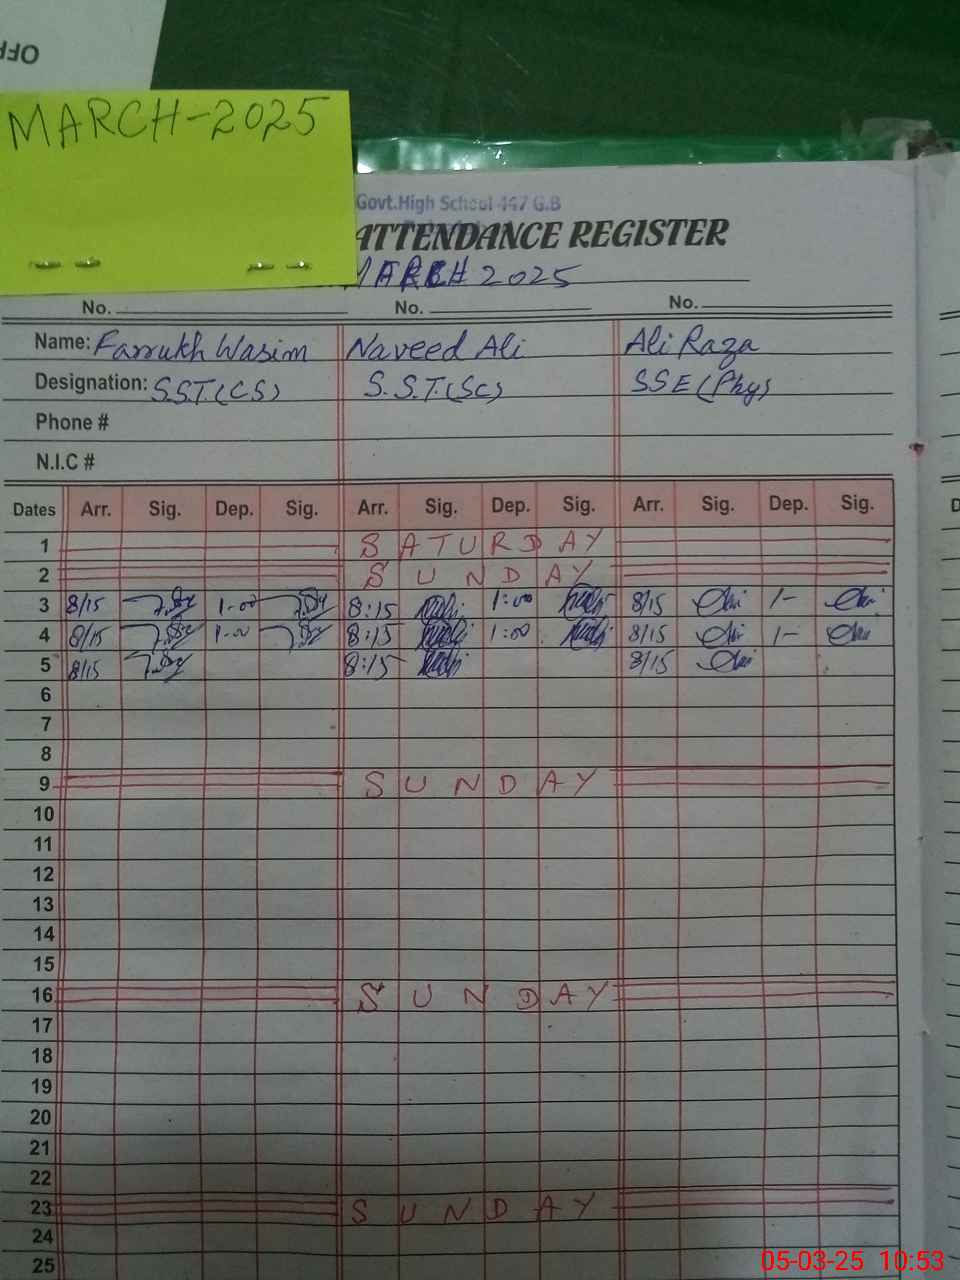 OFF
MARCH-2025
Govt.High School 447 G.B
ATTENDANCE REGISTER
MARCH 2025
No. No. No.
Name: Farrukh Wasim Naveed Ali Ali Raza
Designation: S.S.T(CS) S.S.T.(Sc) SSE(Phy)
Phone #
N.I.C #
Dates Arr. Sig. Dep. Sig. Arr. Sig. Dep. Sig. Arr. Sig. Dep. Sig.
1 SATURDAY
2 SUNDAY
3 8/15 1-00 8:15 1:00 8/15 1-
4 8/15 1-00 8:15 1:00 8/15 1-
5 8/15 8:15 8/15
6
7
8
9 SUNDAY
10
11
12
13
14
15
16 SUNDAY
17
18
19
20
21
22
23 SUNDAY
24
25
05-03-25 10:53